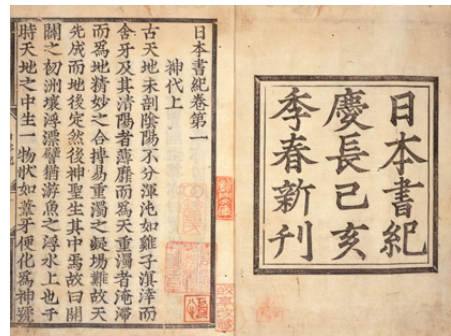 日本書紀
慶長己亥
季春新刊
日本書紀巻第一
神代上
古天地未剖陰陽不分渾沌如雞子溟涬而
含牙及其清陽者薄靡而為天重濁者淹滯
而為地精妙之合搏易重濁之凝場難故天
先成而地後定然後神聖生其中焉故曰開
闢之初洲壤浮漂譬猶游魚之浮水上也于
時天地之中生一物狀如葦牙便化為神號